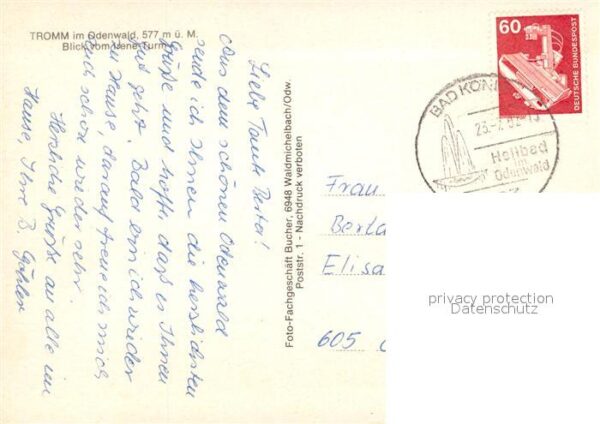 TROMM im Odenwald, 577 m ü. M.
Blick vom Irene-Turm
Liebe Tante Berta!
Aus dem schönen Odenwald
sende ich Ihnen die herzlichsten
Grüße und hoffe, daß es Ihnen
gut geht. Bald bin ich wieder
zu Hause, darauf freue ich mich
auch schon wieder sehr.
Herzliche Grüße an alle im
Hause, Ihre B.
Foto-Fachgeschäft Bucher, 6948 Waldmichelbach/Odw.
Poststr. 1 - Nachdruck verboten
60
DEUTSCHE BUNDESPOST
BAD KÖNIG
Heilbad
im
Odenwald
Frau
Berta
Elisa
605
privacy protection
Datenschutz